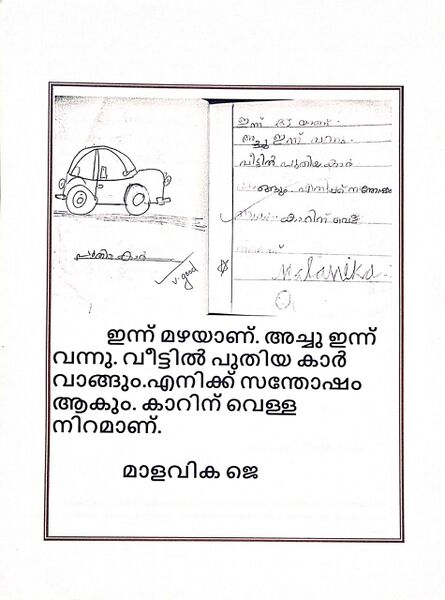 ഇന്ന് മഴയാണ്.
അച്ചു ഇന്ന് വന്നു.
വീട്ടിൽ പുതിയ കാർ
വാങ്ങും. എനിക്ക് സന്തോഷം
കാറിന് വെള്ള
പുതിയ കാർ
v. good
Malavika
ഇന്ന് മഴയാണ്. അച്ചു ഇന്ന്
വന്നു. വീട്ടിൽ പുതിയ കാർ
വാങ്ങും.എനിക്ക് സന്തോഷം
ആകും. കാറിന് വെള്ള
നിറമാണ്.
മാളവിക ജെ